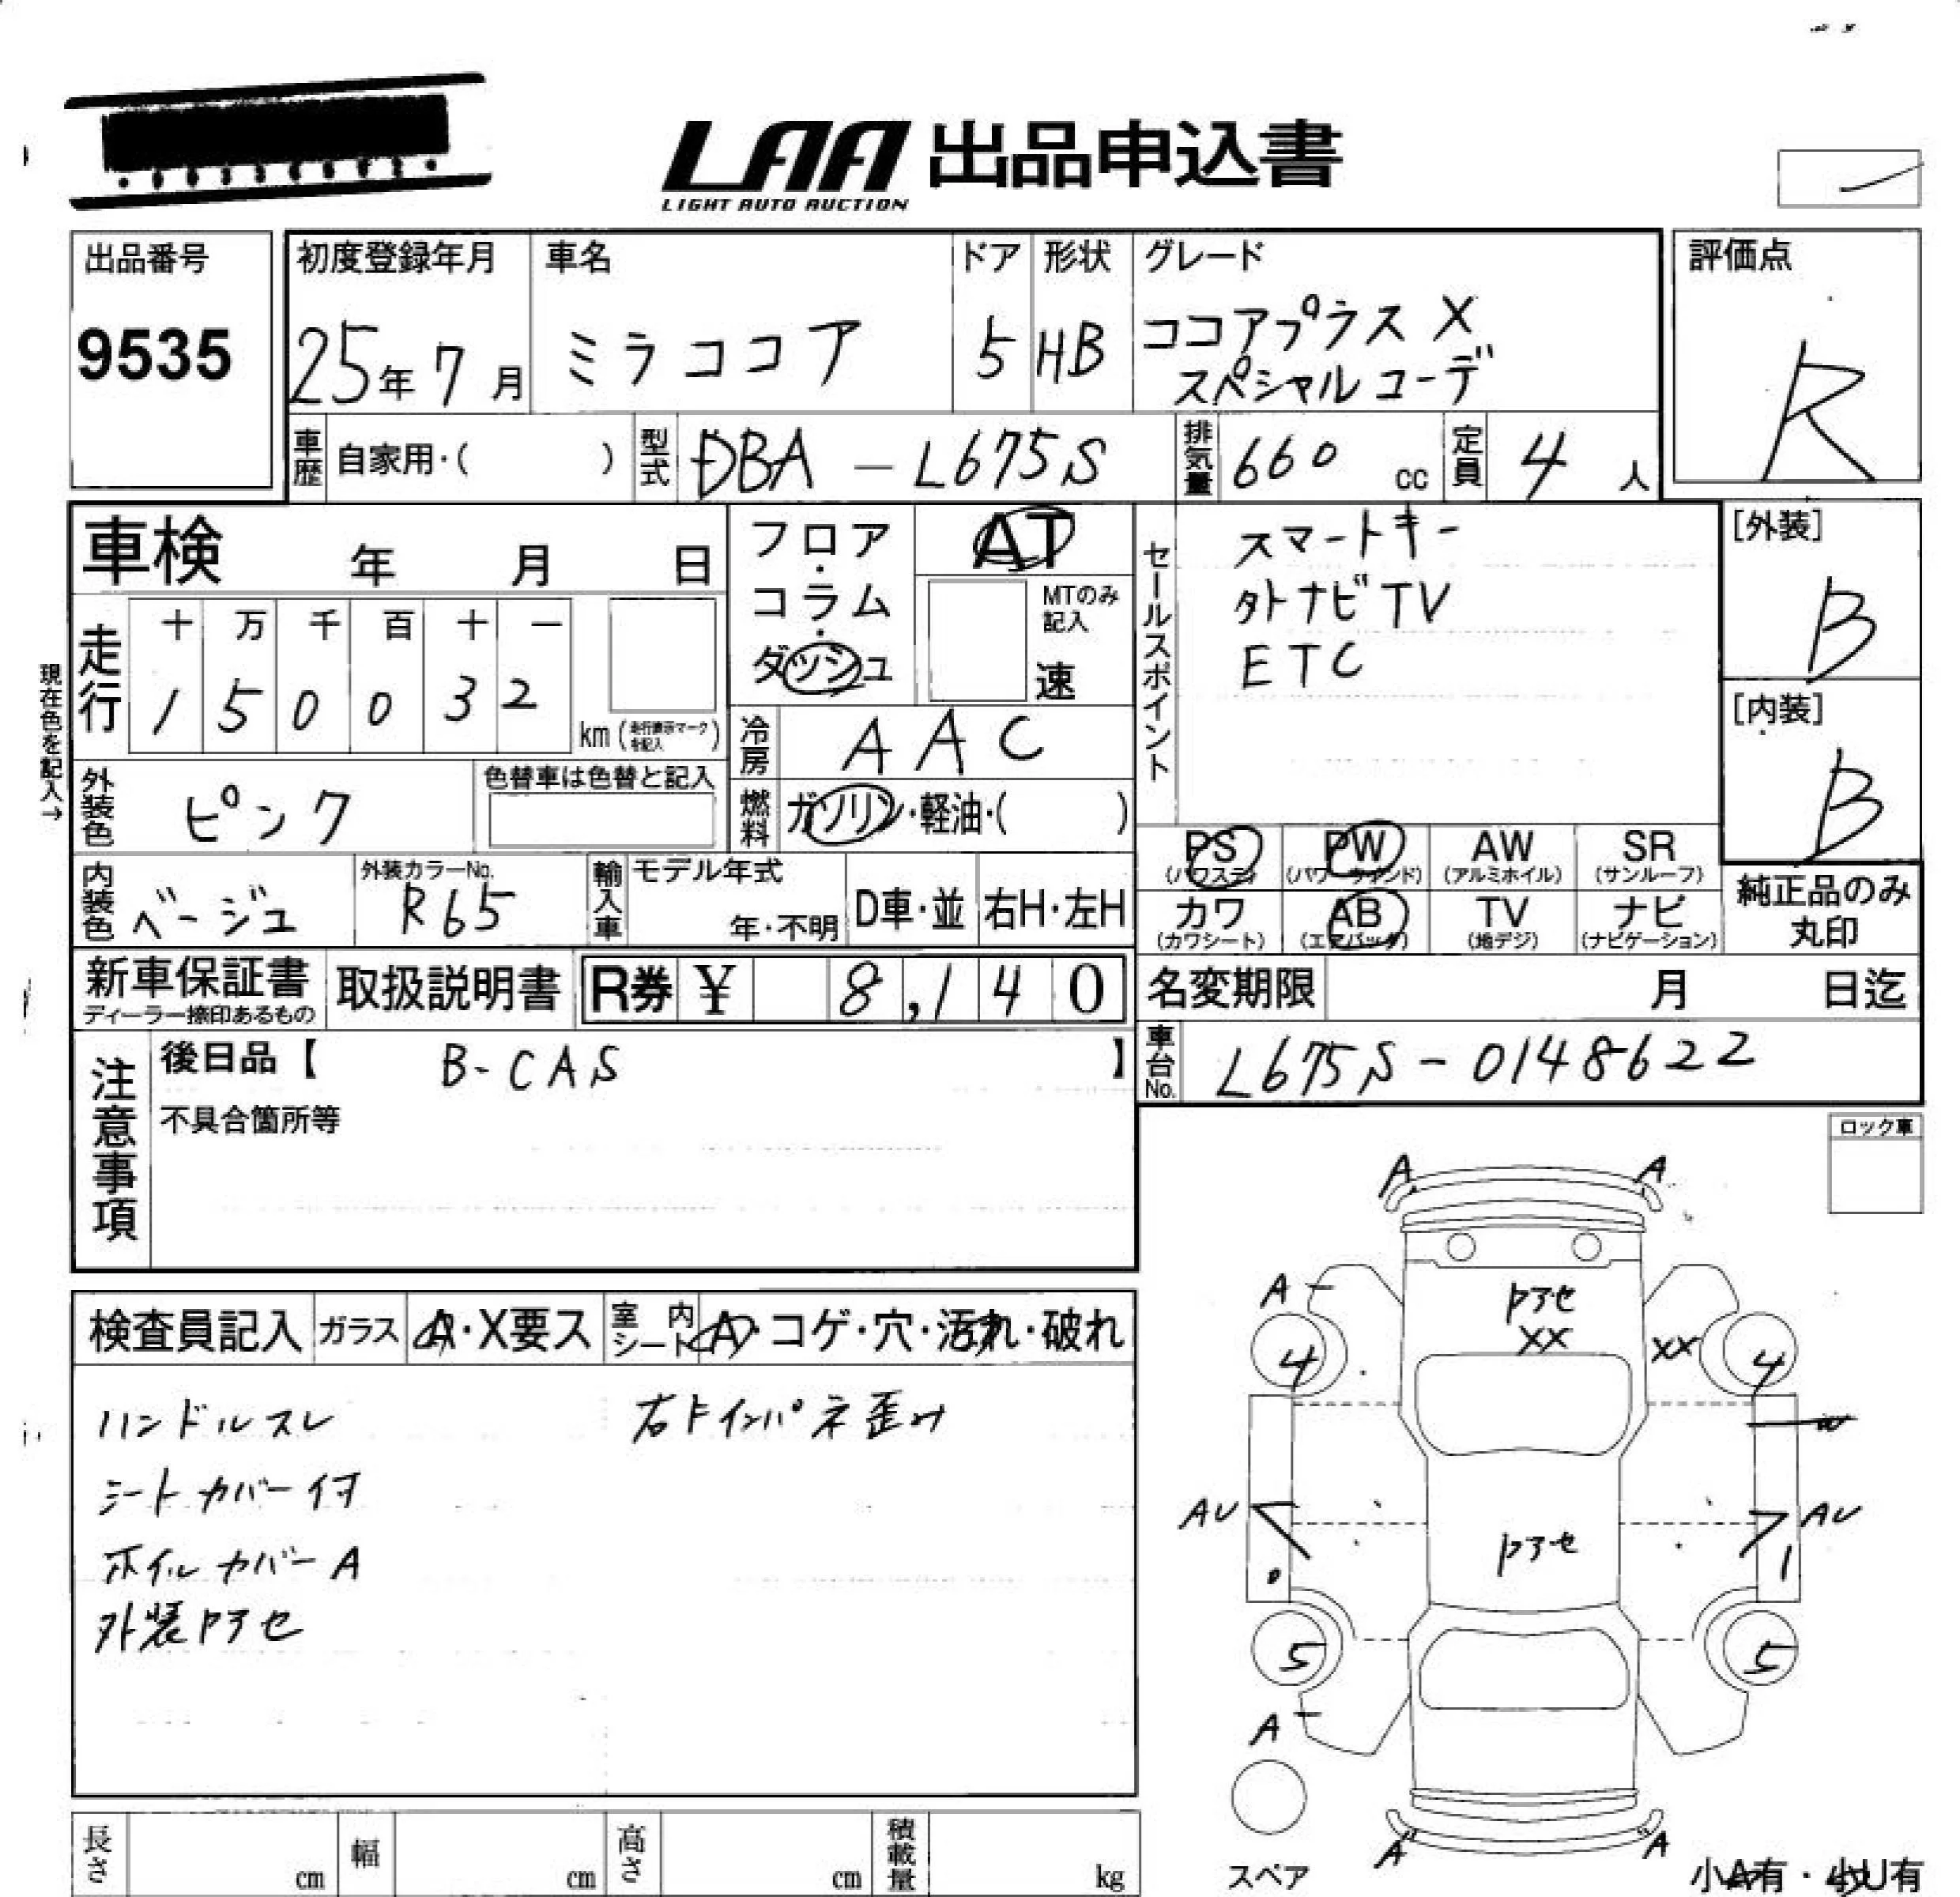 LAA 出品申込書
LIGHT AUTO AUCTION
出品番号
9535
初度登録年月
25年7月
車名
ミラココア
ドア
5
形状
HB
グレード
ココアプラス X
スペシャルコーデ
評価点
R
車歴 自家用・( )
型式 DBA - L675S
排気量 660 cc
定員 4 人
車検 年 月 日
フロア・コラム・ダッシュ
AT
MTのみ記入
速
セールスポイント
スマートキー
タトナビTV
ETC
[外装]
B
[内装]
B
現在色を記入→
走行
十 万 千 百 十 一
1 5 0 0 3 2
km (走行表示マークを記入)
冷房 AAC
燃料 ガソリン・軽油・( )
外装色 ピンク
色替車は色替と記入
内装色 ベージュ
外装カラーNo.
R65
輸入車 モデル年式
年・不明
D車・並
右H・左H
PS (パワステ)
PW (パワーウィンド)
AW (アルミホイル)
SR (サンルーフ)
カワ (カワシート)
AB (エアバッグ)
TV (地デジ)
ナビ (ナビゲーション)
純正品のみ
丸印
新車保証書
ディーラー捺印あるもの
取扱説明書
R券 ¥ 8,140
名変期限 月 日迄
注意事項
後日品【 B-CAS 】
不具合箇所等
車台No. L675S-0148622
ロック車
検査員記入
ガラス A・X要ス
室内シート A・コゲ・穴・汚れ・破れ
ハンドルスレ
シートカバー付
ホイルカバーA
外装トアセ
右トインパネ歪み
A A
A
トアセ
XX XX
4 4
AU AU
トアセ
5 5
A
A A
スペア
小A有・小U有
長さ cm
幅 cm
高さ cm
積載量 kg